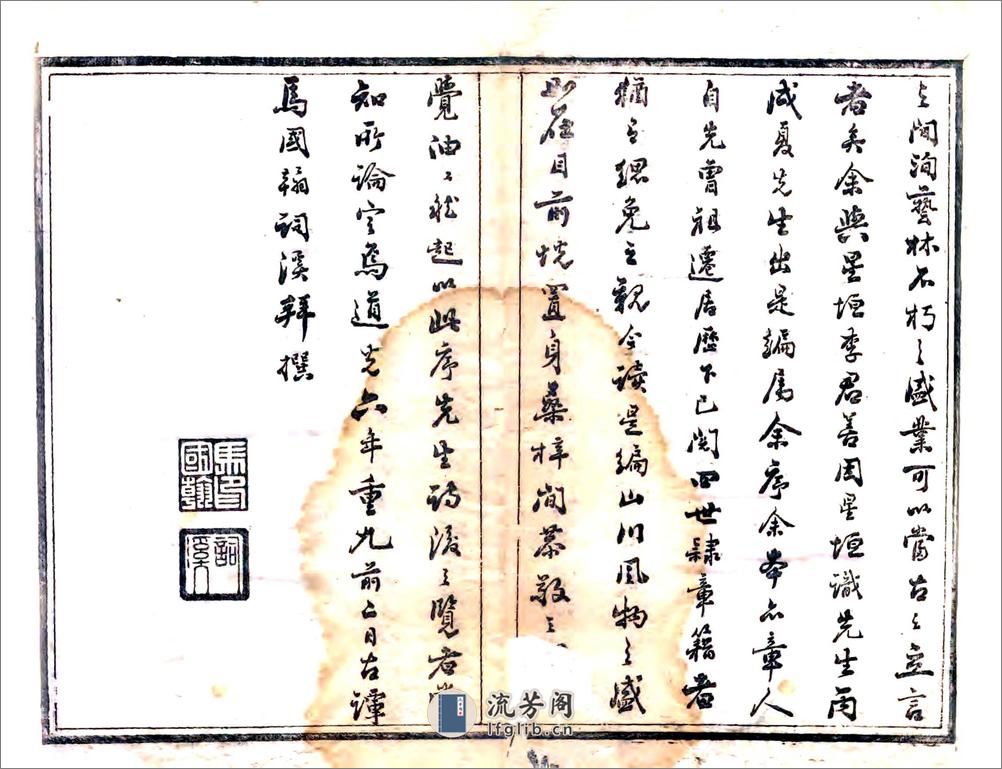 之間洵藝林不朽之盛業可以當古之立言
者矣余與星垣李君善因星垣識先生丙
戌夏先生出是編屬余序余本亦章人
自先曾祖遷居歷下已閱四世隸章籍者
猶
之觀今讀是編山川風物之盛
如在目前恍置身桑梓間恭敬之
覺油々然起以此序先生詩後之覽者
知所論定焉道光六年重九前二日古譚
馬國翰詞溪拜撰
馬國翰印
詞溪
流芳阁
lfglib.cn